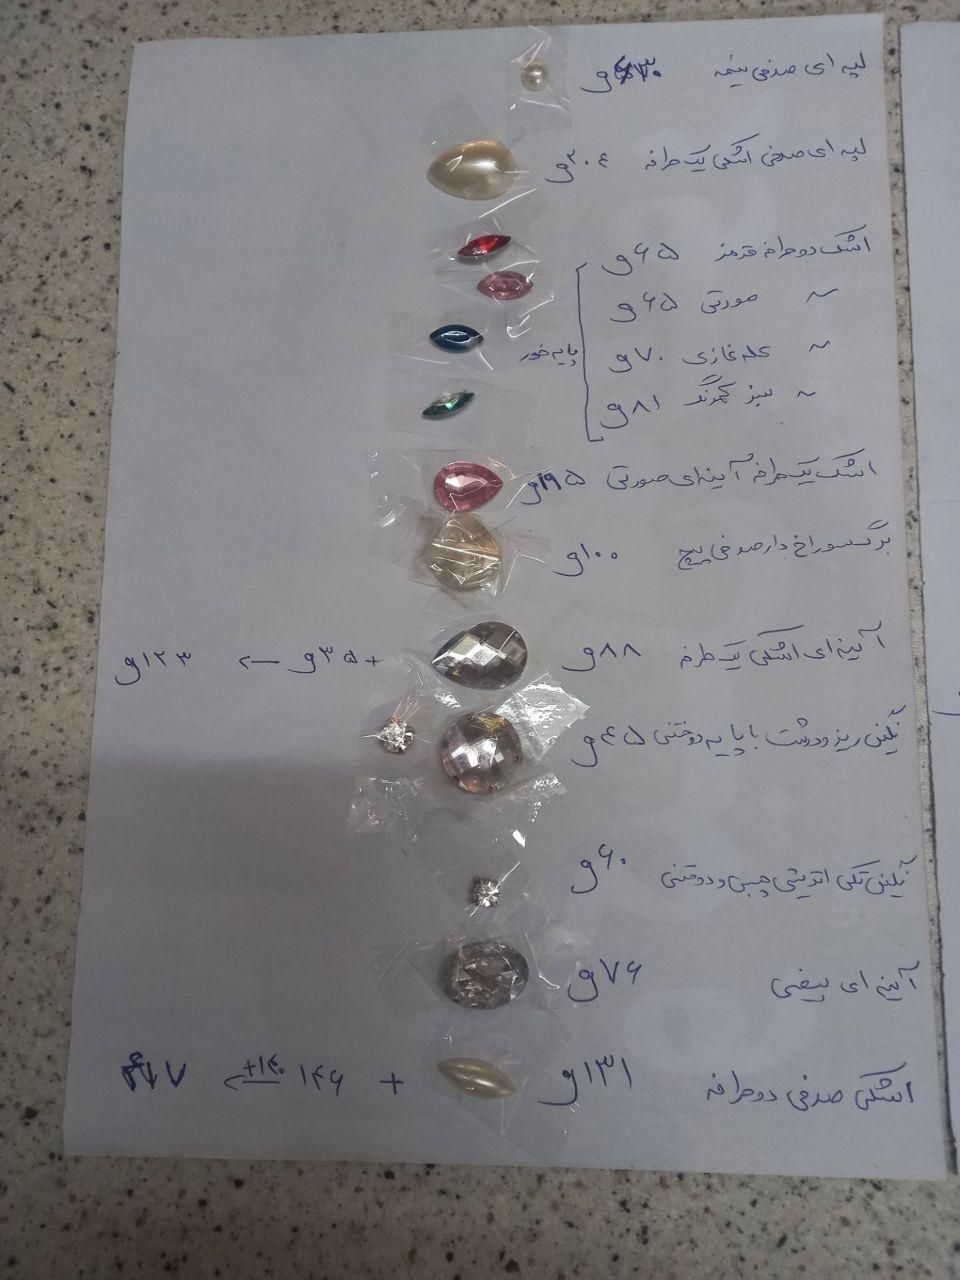 لپه ای صدفی نیمه ۳۰و
لپه ای صدفی اشکی یک طرفه ۳۰۴و
اشک دو طرفه قرمز ۶۵و
~ صورتی ۶۵و
~ کله غازی ۷۰و
پایه خور
~ سبز کمرنگ ۸۱و
اشک یک طرفه آینه‌ای صورتی ۱۹۵و
برگ سوراخ دار صدفی پیچ ۱۰۰و
آینه ای اشکی یک طرفه ۸۸و + ۳۵و ← ۱۲۳و
نگین ریز و درشت با پایه دوختنی ۴۵و
نگین تکی اتریشی چسبی و دوختنی ۶۰و
آینه ای بیضی ۷۶و
اشکی صدفی دو طرفه ۱۳۱و + ۱۴۶ +۱۴۰ ← ۴۱۷